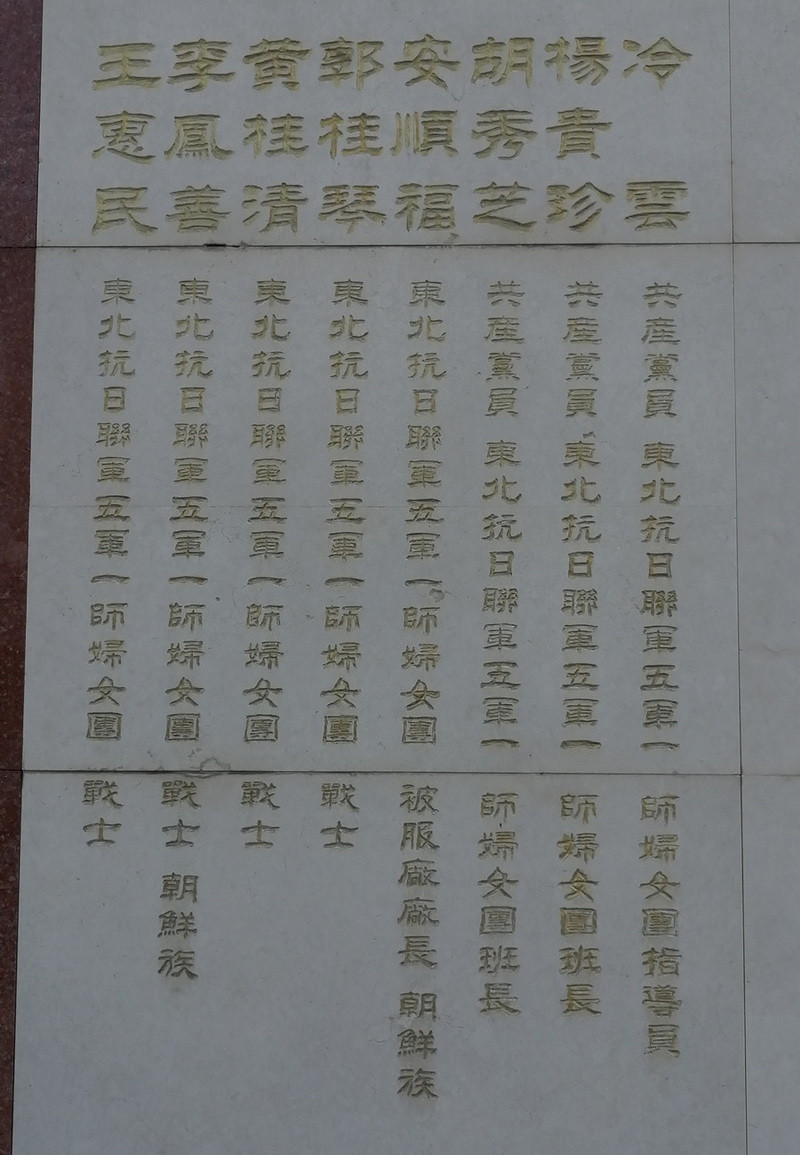 冷雲 共産黨員 東北抗日聯軍五軍一師婦女團指導員
楊貴珍 共産黨員 東北抗日聯軍五軍一師婦女團班長
胡秀芝 共産黨員 東北抗日聯軍五軍一師婦女團班長
安順福 東北抗日聯軍五軍一師婦女團被服廠廠長 朝鮮族
郭桂琴 東北抗日聯軍五軍一師婦女團戰士
黄桂清 東北抗日聯軍五軍一師婦女團戰士
李鳳善 東北抗日聯軍五軍一師婦女團戰士 朝鮮族
王惠民 東北抗日聯軍五軍一師婦女團戰士